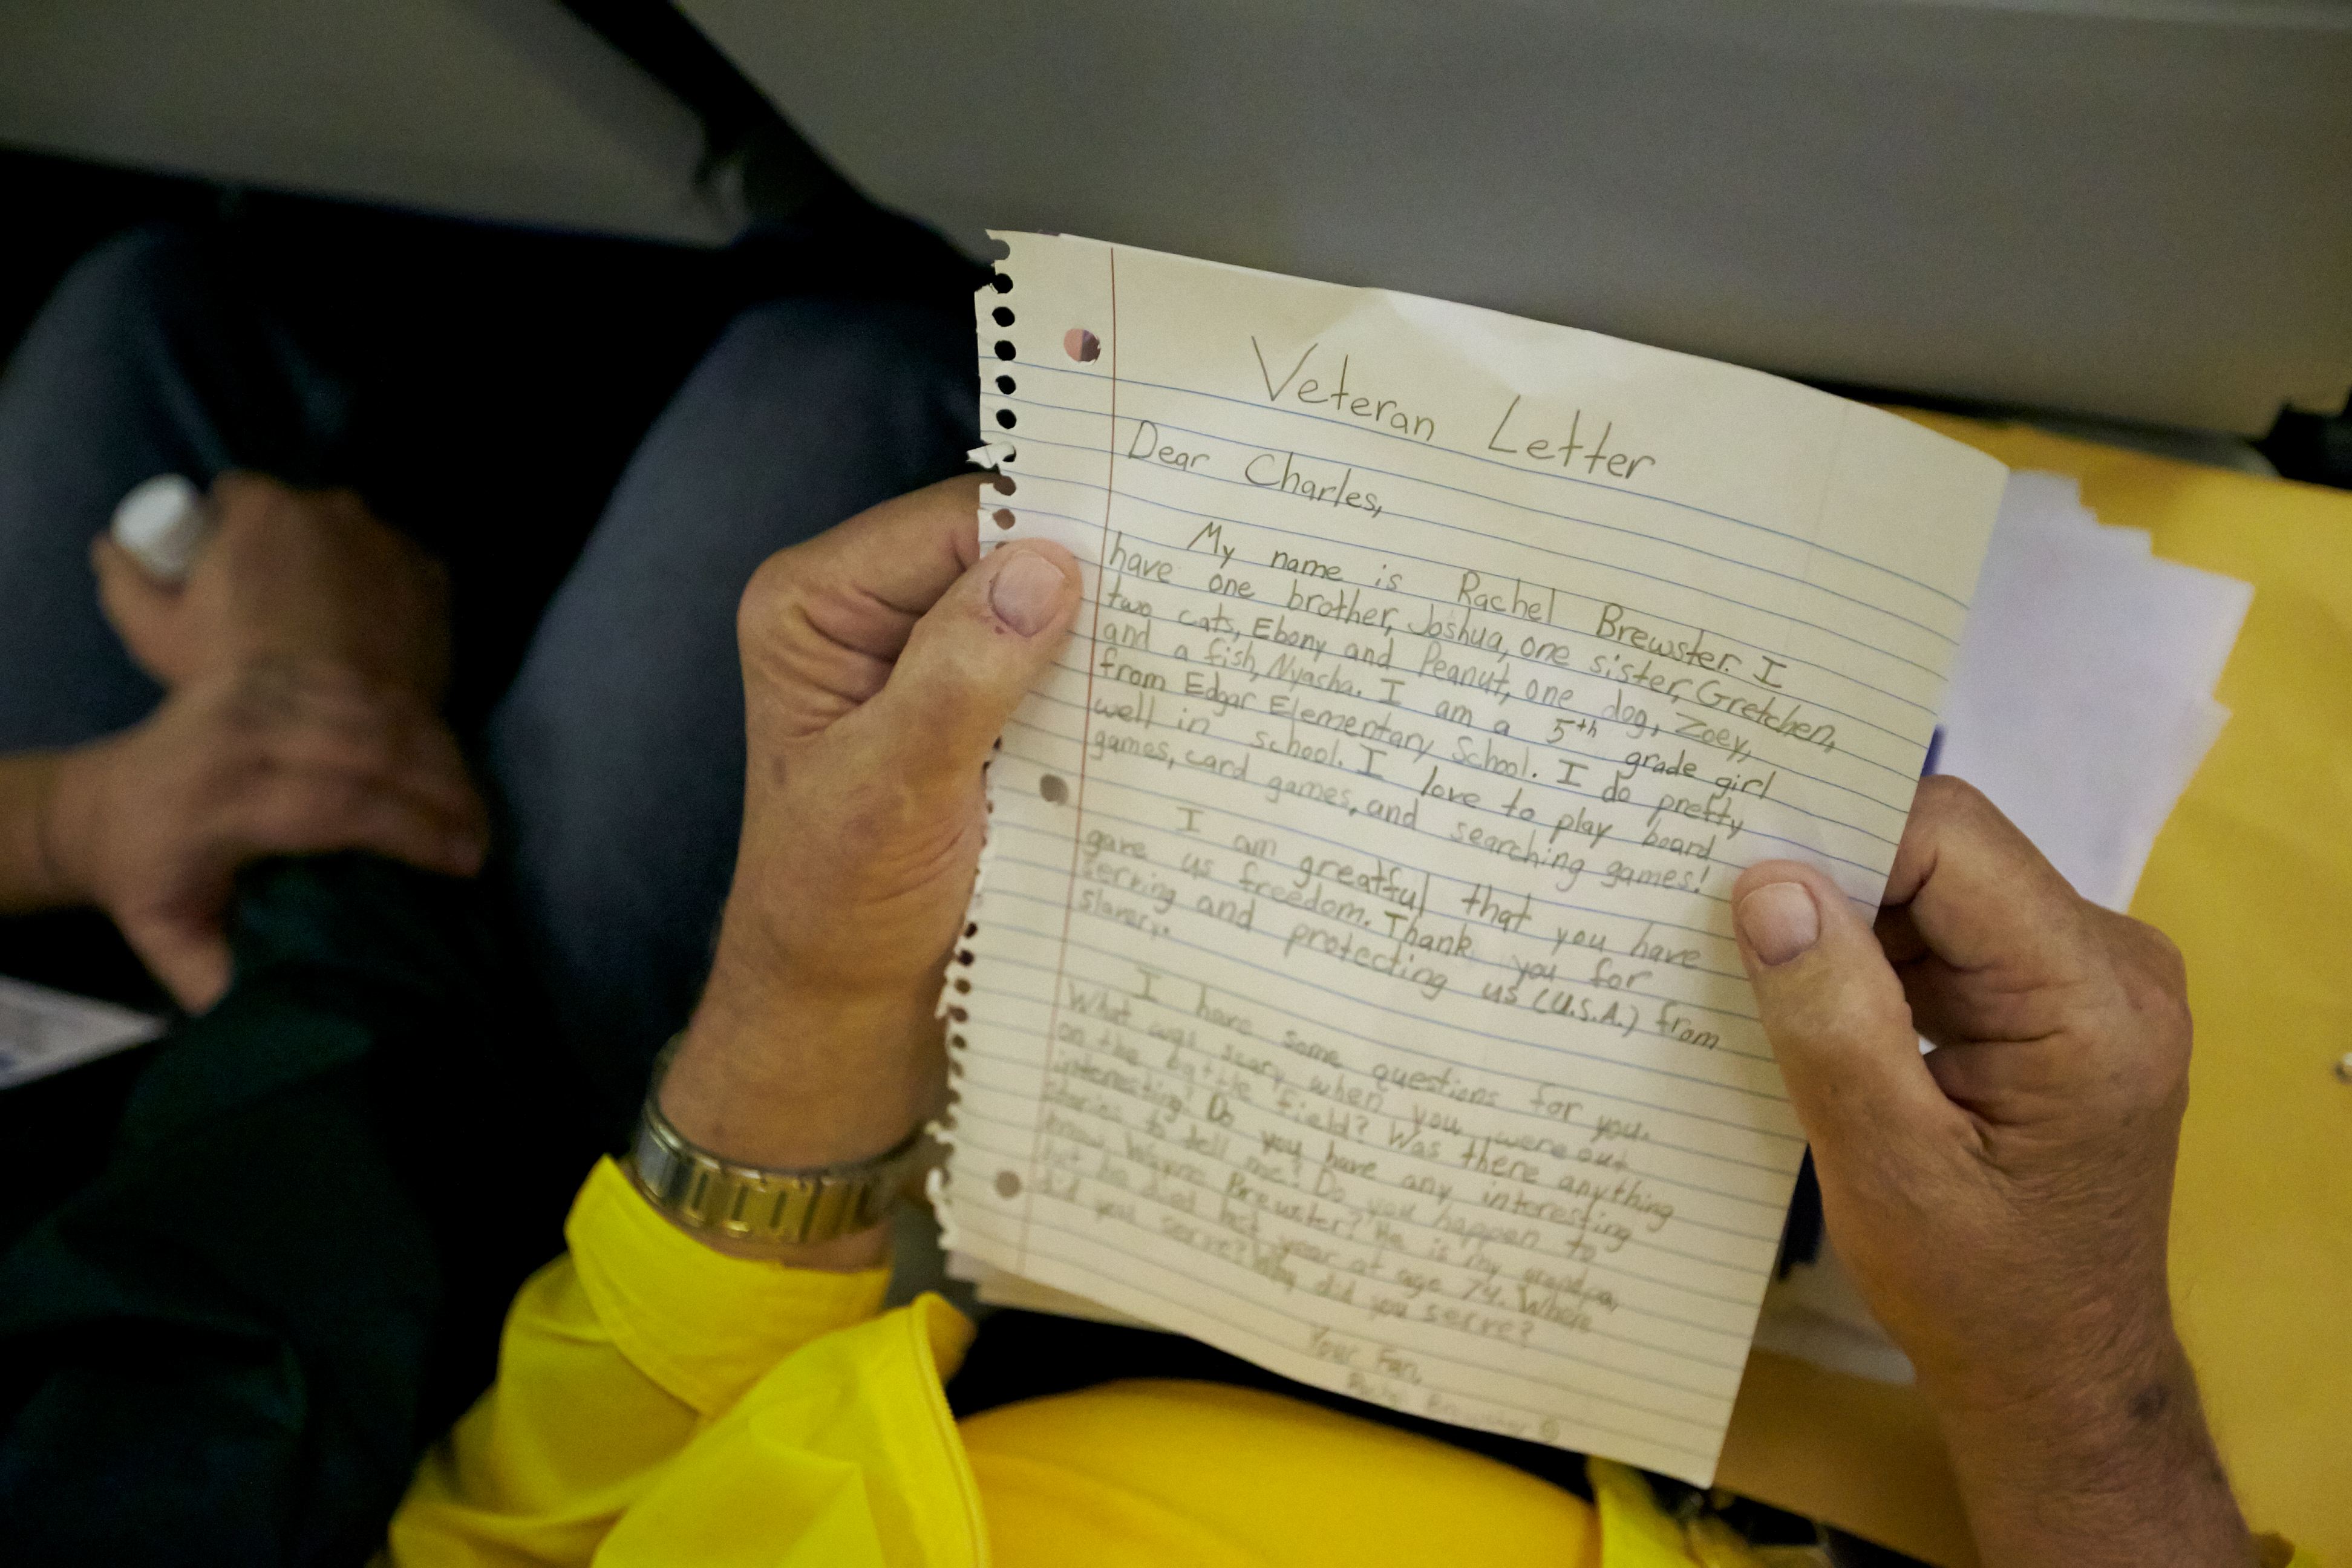 Veteran Letter
Dear Charles,
My name is Rachel Brewster. I
have one brother, Joshua, one sister, Gretchen,
two cats, Ebony and Peanut, one dog, Zoey,
and a fish, Nyasha. I am a 5th grade girl
from Edgar Elementary School. I do pretty
well in school. I love to play board
games, card games, and searching games!
I am greatful that you have
gave us freedom. Thank you for
serving and protecting us (U.S.A.) from
slavery.
I have some questions for you.
What was scary when you were out
on the battle field? Was there anything
interesting? Do you have any interesting
stories to tell me? Do you happen to
know Wayne Brewster? He is my grandpa,
but he died last year at age 74. Where
did you serve? Why did you serve?
Your Fan,
Rachel Brewster